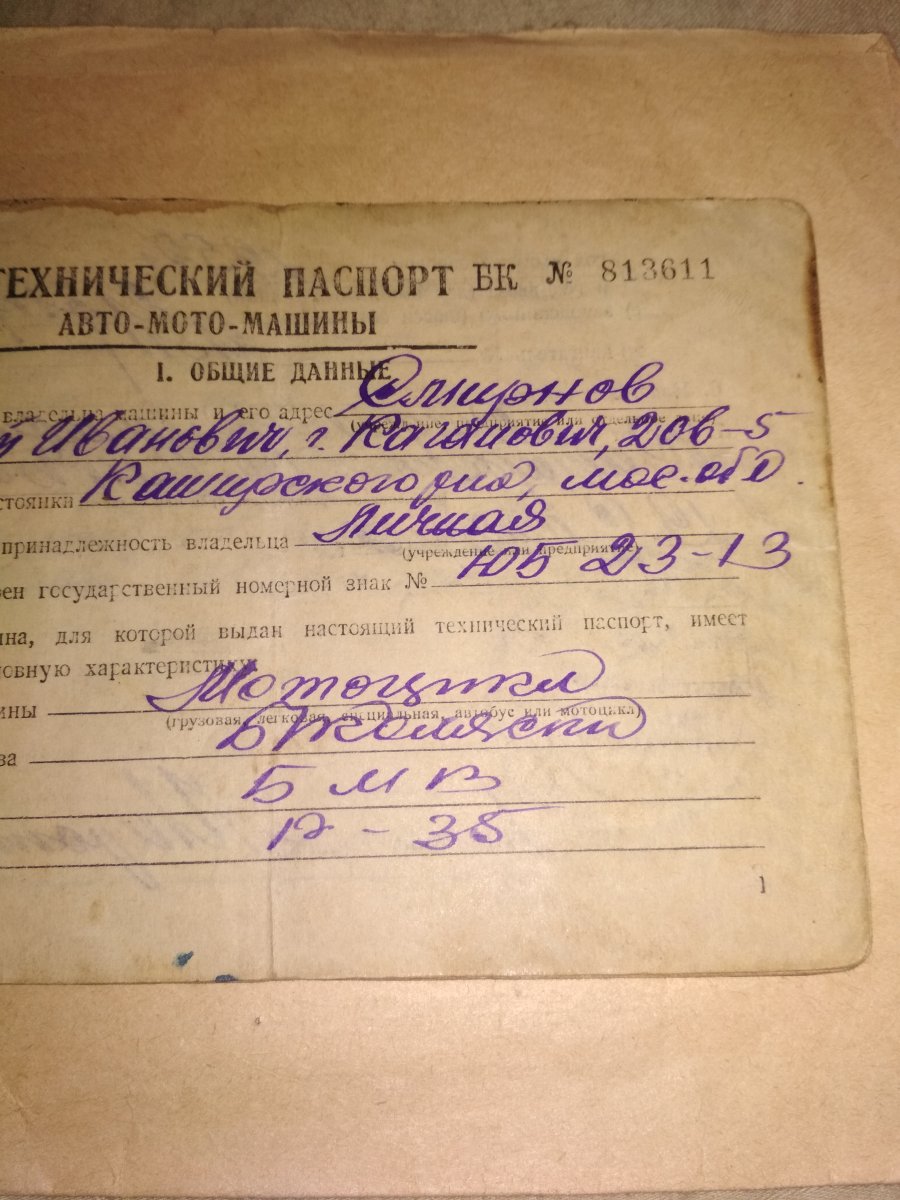 ТЕХНИЧЕСКИЙ ПАСПОРТ БК № 813611
АВТО-МОТО-МАШИНЫ
I. ОБЩИЕ ДАННЫЕ
владельца машины и его адрес Смирнов
(учреждение, предприятие или отдельное лицо)
й Иванович, г. Каганович, 20в-5
стоянки Каширского р-на, мос. обл.
принадлежность владельца личная
(учреждение или предприятие)
ен государственный номерной знак № ЮБ 23-13
ина, для которой выдан настоящий технический паспорт, имеет
овную характеристику:
ины Мотоцикл
(грузовая, легковая, специальная, автобус или мотоцикл)
ва Б/коляски
БМВ
R-35
1